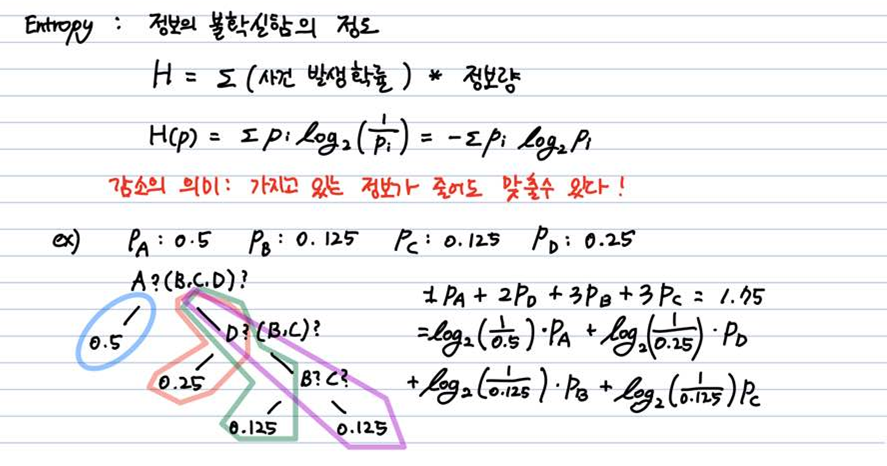 Entropy : 정보의 불확실함의 정도
H = Σ (사건 발생 확률) * 정보량
H(p) = Σ pi log₂(1/pi) = -Σ pi log₂ pi
감소의 의미: 가지고 있는 정보가 줄어도 맞출수 있다!
ex) PA : 0.5 PB : 0.125 PC : 0.125 PD : 0.25
A?(B,C,D)?
0.5 D?(B,C)?
0.25 B?C?
0.125 0.125
1PA + 2PD + 3PB + 3PC = 1.75
=log₂(1/0.5)·PA + log₂(1/0.25)·PD
+log₂(1/0.125)·PB + log₂(1/0.125)PC